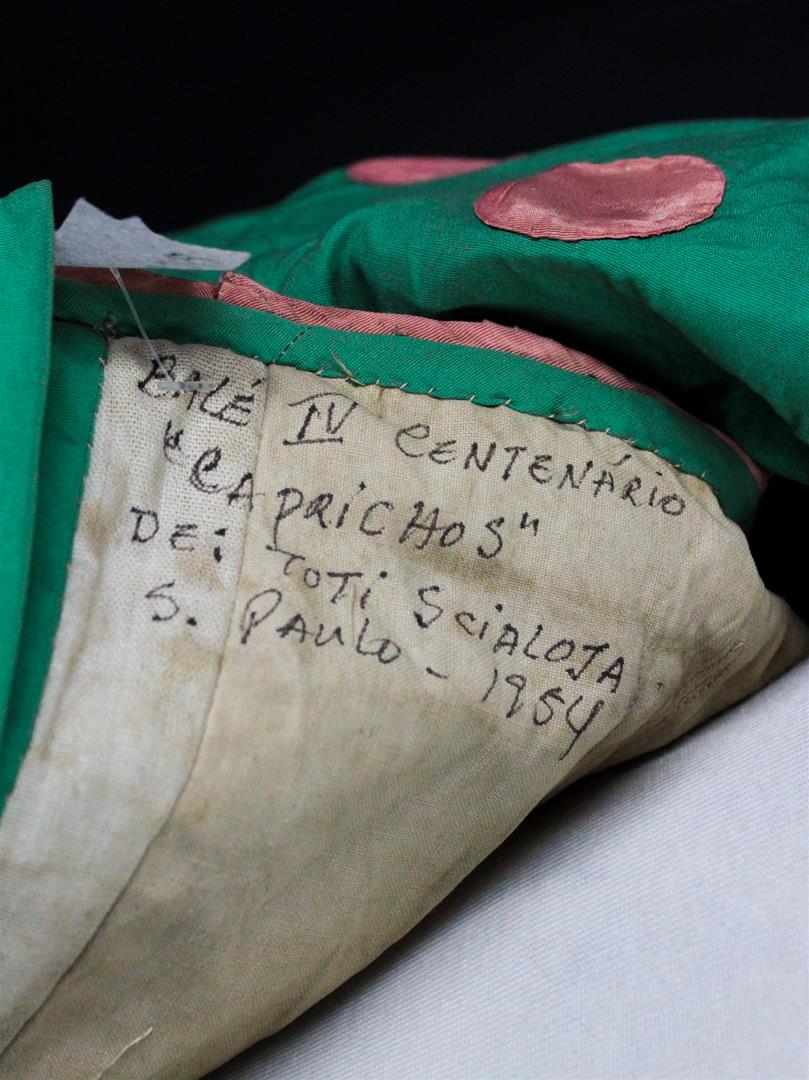 BALÉ IV CENTENÁRIO
"CAPRICHOS"
DE: TOTI SCIALOJA
S. PAULO - 1954